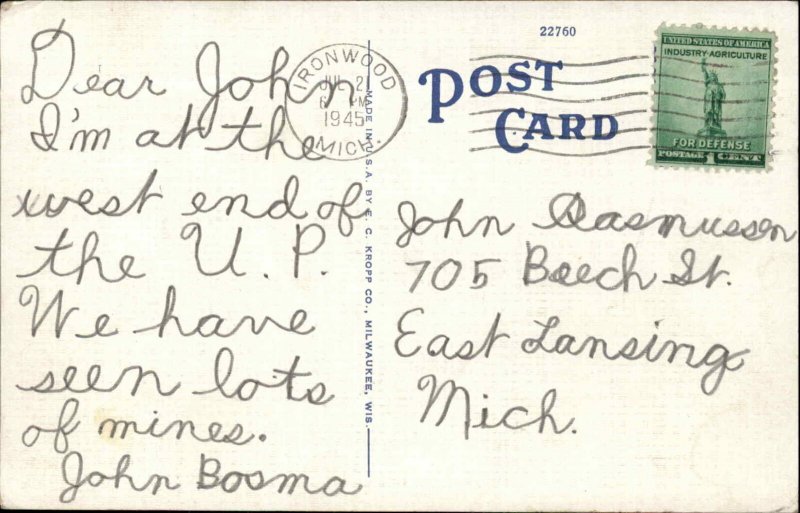 Dear John
I'm at the
west end of
the U.P.
We have
seen lots
of mines.
John Bosma
IRONWOOD
JUL 2
1945
MICH.
MADE IN U.S.A. BY E. C. KROPP CO., MILWAUKEE, WIS.
22760
POST
CARD
UNITED STATES OF AMERICA
INDUSTRY-AGRICULTURE
FOR DEFENSE
POSTAGE 1 CENT
John Rasmussen
705 Beech St.
East Lansing
Mich.